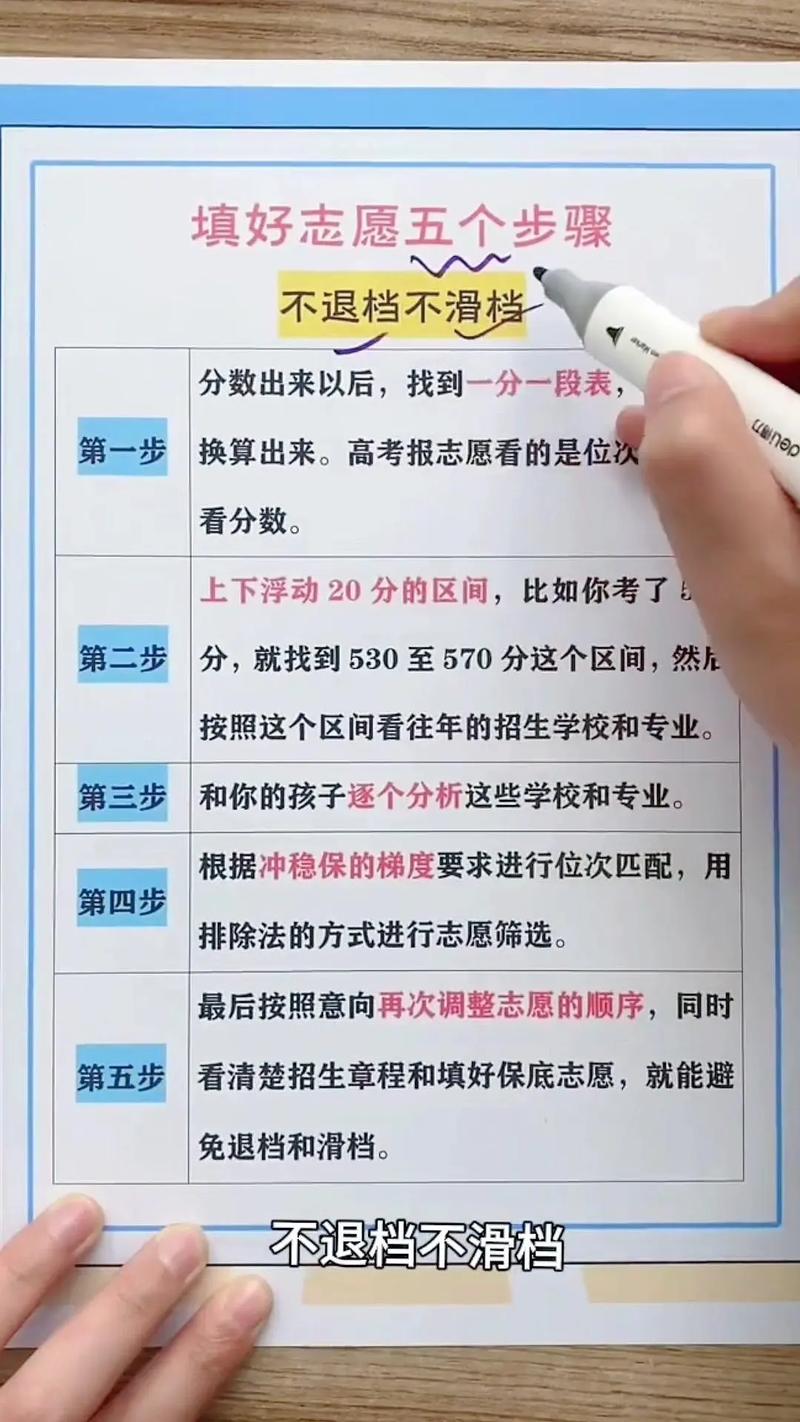 填好志愿五个步骤
不退档不滑档
第一步
分数出来以后，找到一分一段表，
换算出来。高考报志愿看的是位次
看分数。
第二步
上下浮动 20 分的区间，比如你考了 5
分，就找到 530 至 570 分这个区间，然后
按照这个区间看往年的招生学校和专业。
第三步
和你的孩子逐个分析这些学校和专业。
第四步
根据冲稳保的梯度要求进行位次匹配，用
排除法的方式进行志愿筛选。
第五步
最后按照意向再次调整志愿的顺序，同时
看清楚招生章程和填好保底志愿，就能避
免退档和滑档。
deli得力
不退档不滑档